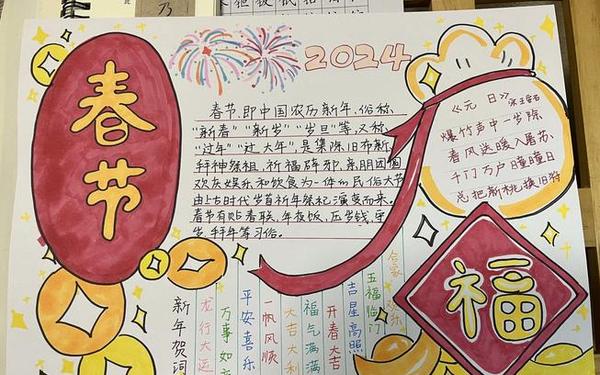 春节
2024
春节,即中国农历新年,俗称
"新春""新岁""岁旦"等,又称
"过年""过大年",是集除旧布新、
拜神祭祖,祈福辟邪、亲朋团圆
欢庆娱乐和饮食为一体的民俗大节
由上古时代岁首祈年祭祀演变而来。
春节有贴春联,年夜饭,压岁钱,守
岁,拜年等习俗。
《元日》宋王安石
爆竹声中一岁除
春风送暖入屠苏
千门万户曈曈日
总把新桃换旧符
福
新年贺词
龙行大运
万事如
平安喜乐
一帆风顺
大吉大利
福气满满
开春大吉
吉星高照
五福临门
合家欢乐